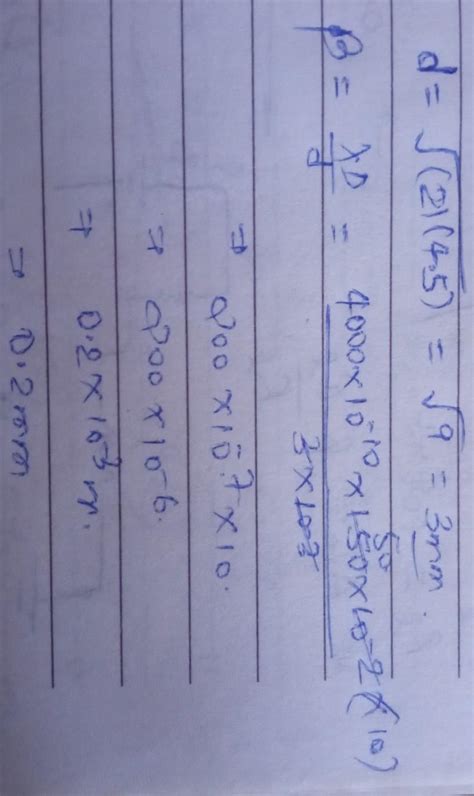 d = √(2)(4.5) = √9 = 3mm.
β = λD/d = 4000×10⁻¹⁰ × 150 50 ×10⁻² (×10) / 3×10⁻³
⇒ 200 × 10⁻⁷ × 10.
⇒ 200 × 10⁻⁶.
⇒ 0.2 × 10⁻³ m.
⇒ 0.2mm